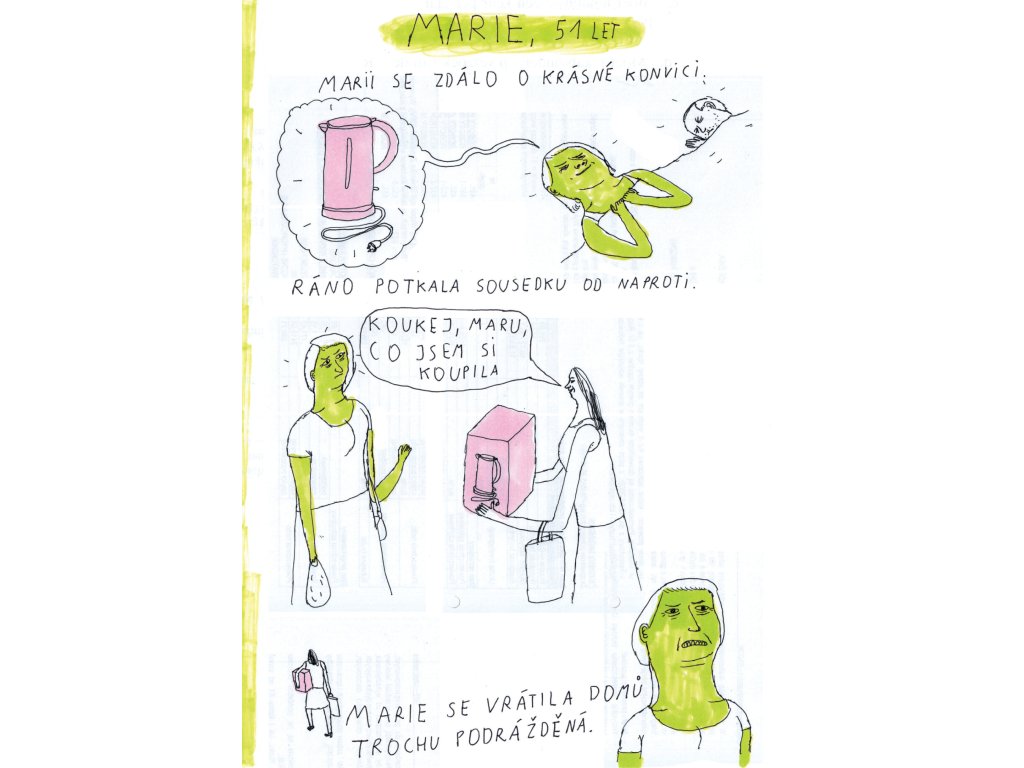 MARIE, 51 LET
MARII SE ZDÁLO O KRÁSNÉ KONVICI.
RÁNO POTKALA SOUSEDKU OD NAPROTI.
KOUKEJ, MARU,
CO JSEM SI
KOUPILA
MARIE SE VRÁTILA DOMŮ
TROCHU PODRÁŽDĚNÁ.